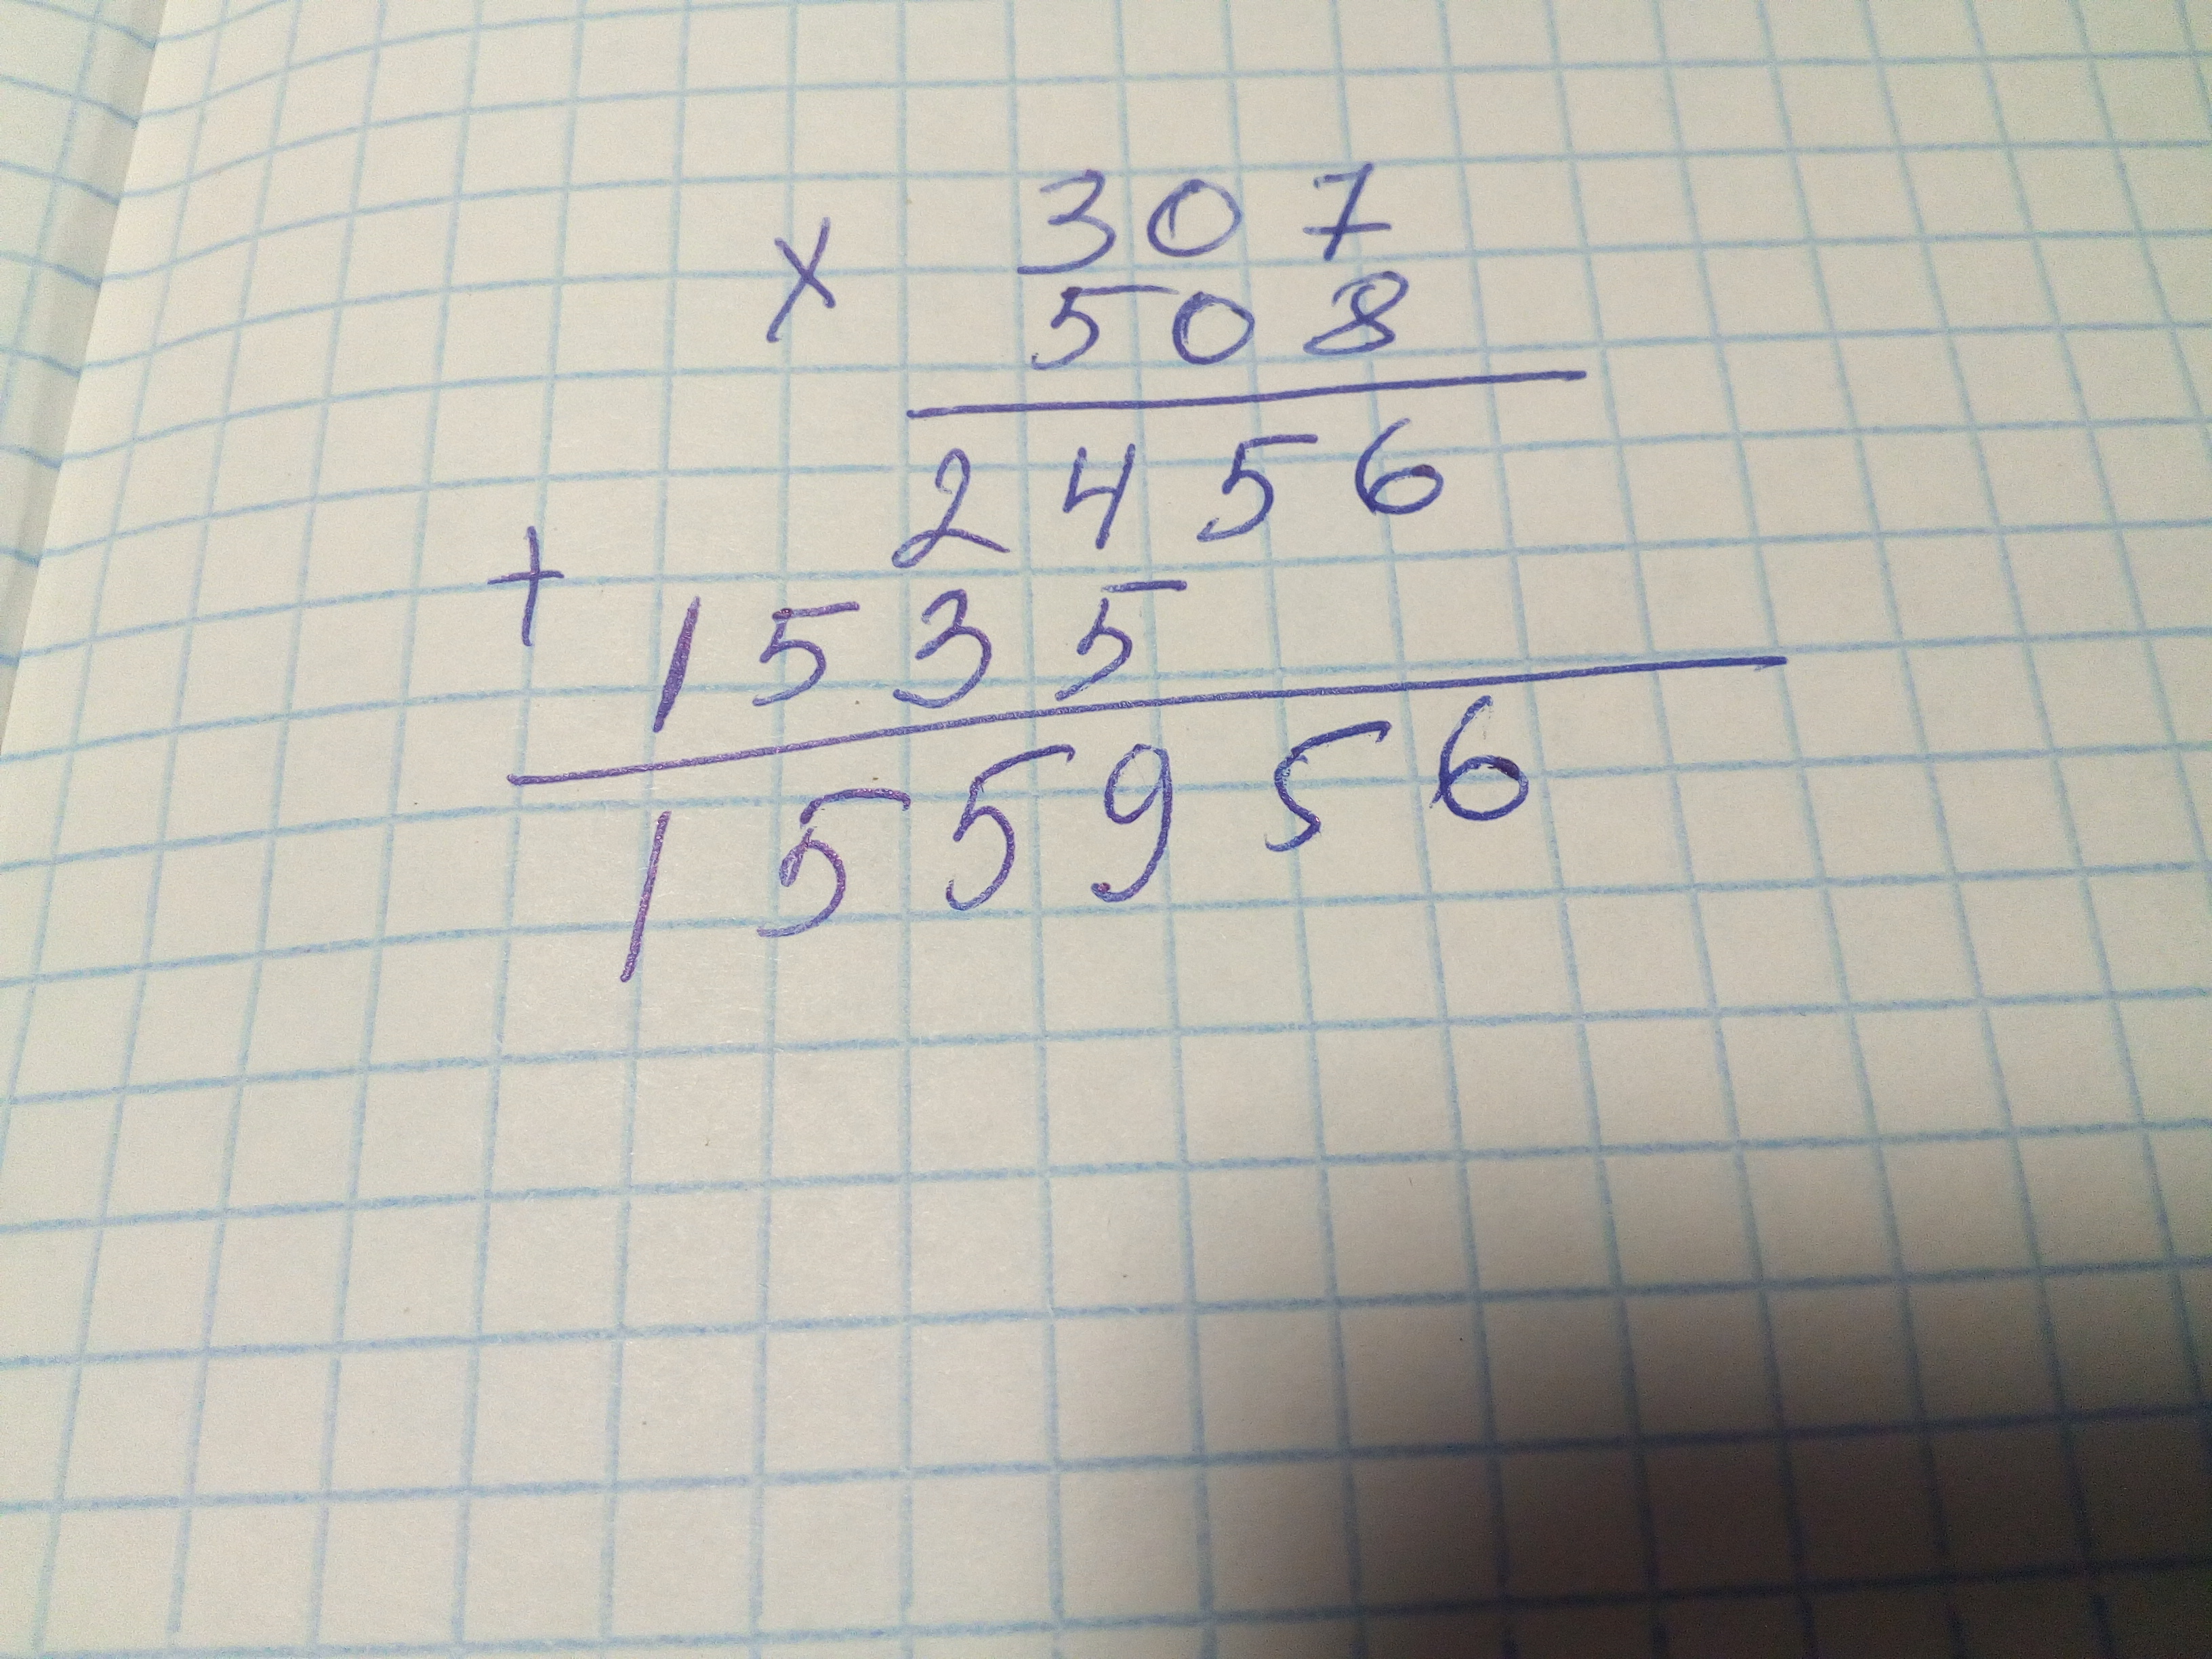 × 307
508
2456
+ 1535
155956